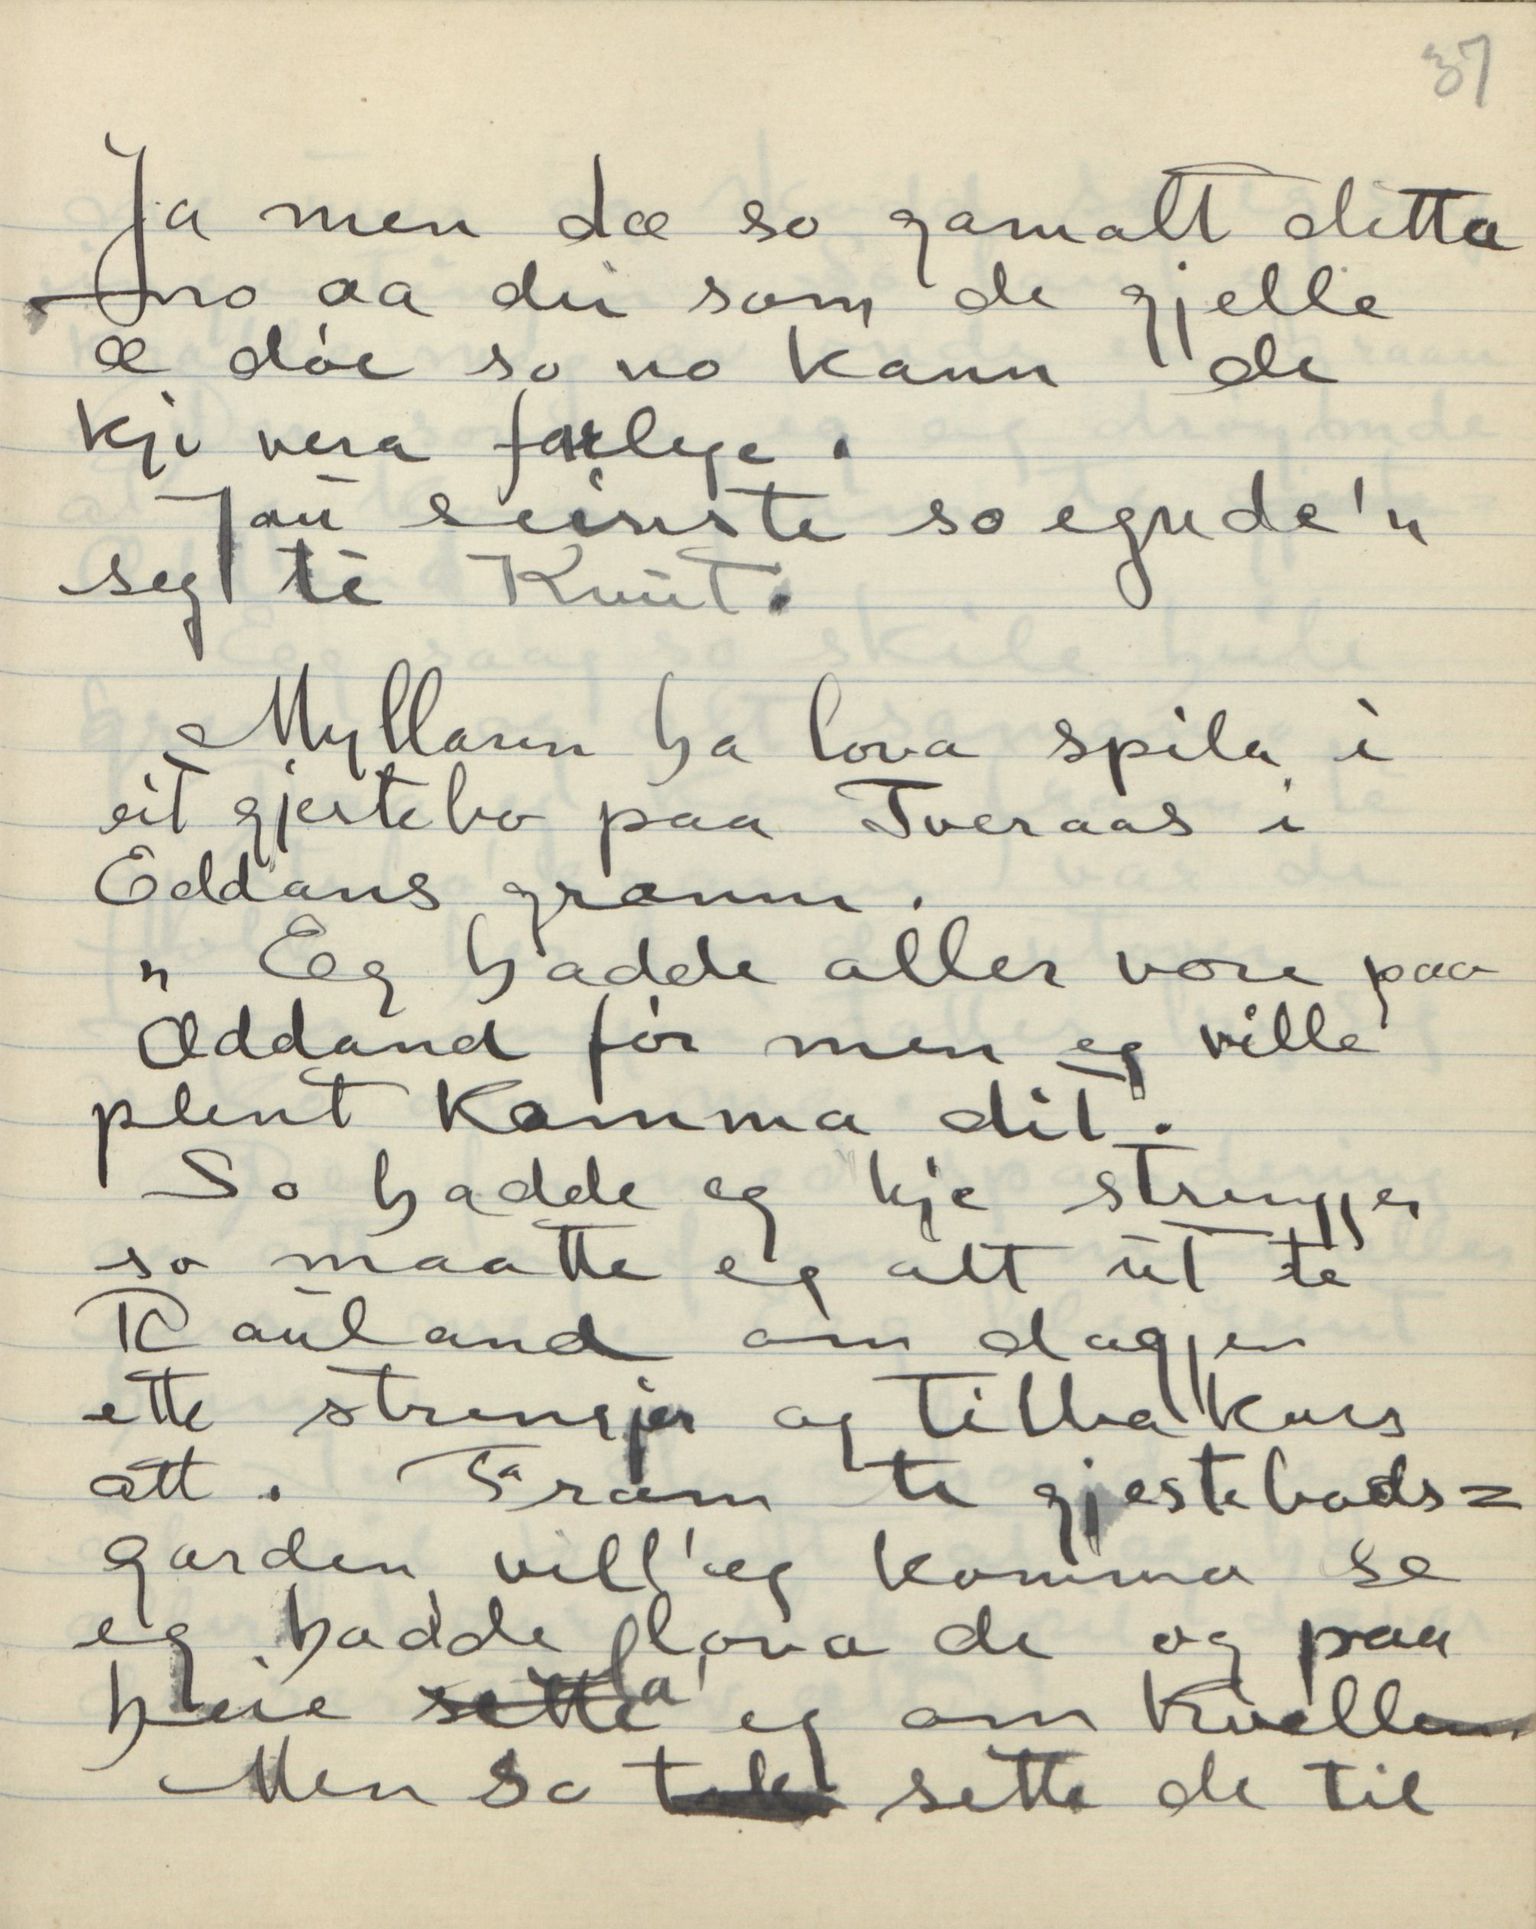 37
Ja men dæ so gamalt ditta
no aa dei som de gjelle
æ döe so no kann de
kji vera farlege.
Jau seinste so egnde'n
seg te Knut.
Myllaren ha lova spila i
eit gjestebo paa Tveraas i
Eddans grenn.
" Eg hadde aller vore paa
Øddand för men eg ville
plent komma dit.
So hadde eg kje strengjer
so maatte eg att ut te
Rauland om dagjen
ette strengjer og tilbakurs
att. Fram te gjestebods=
garden vill'eg komma so
eg hadde lova de og paa
heie sette la' eg om kvellen.
Men so tok sette de til